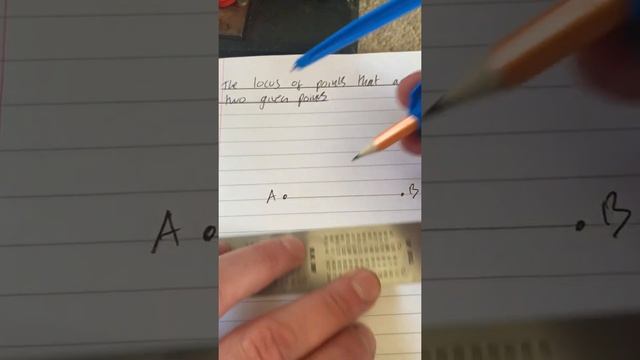 The locus of points that a
two given points
A
B